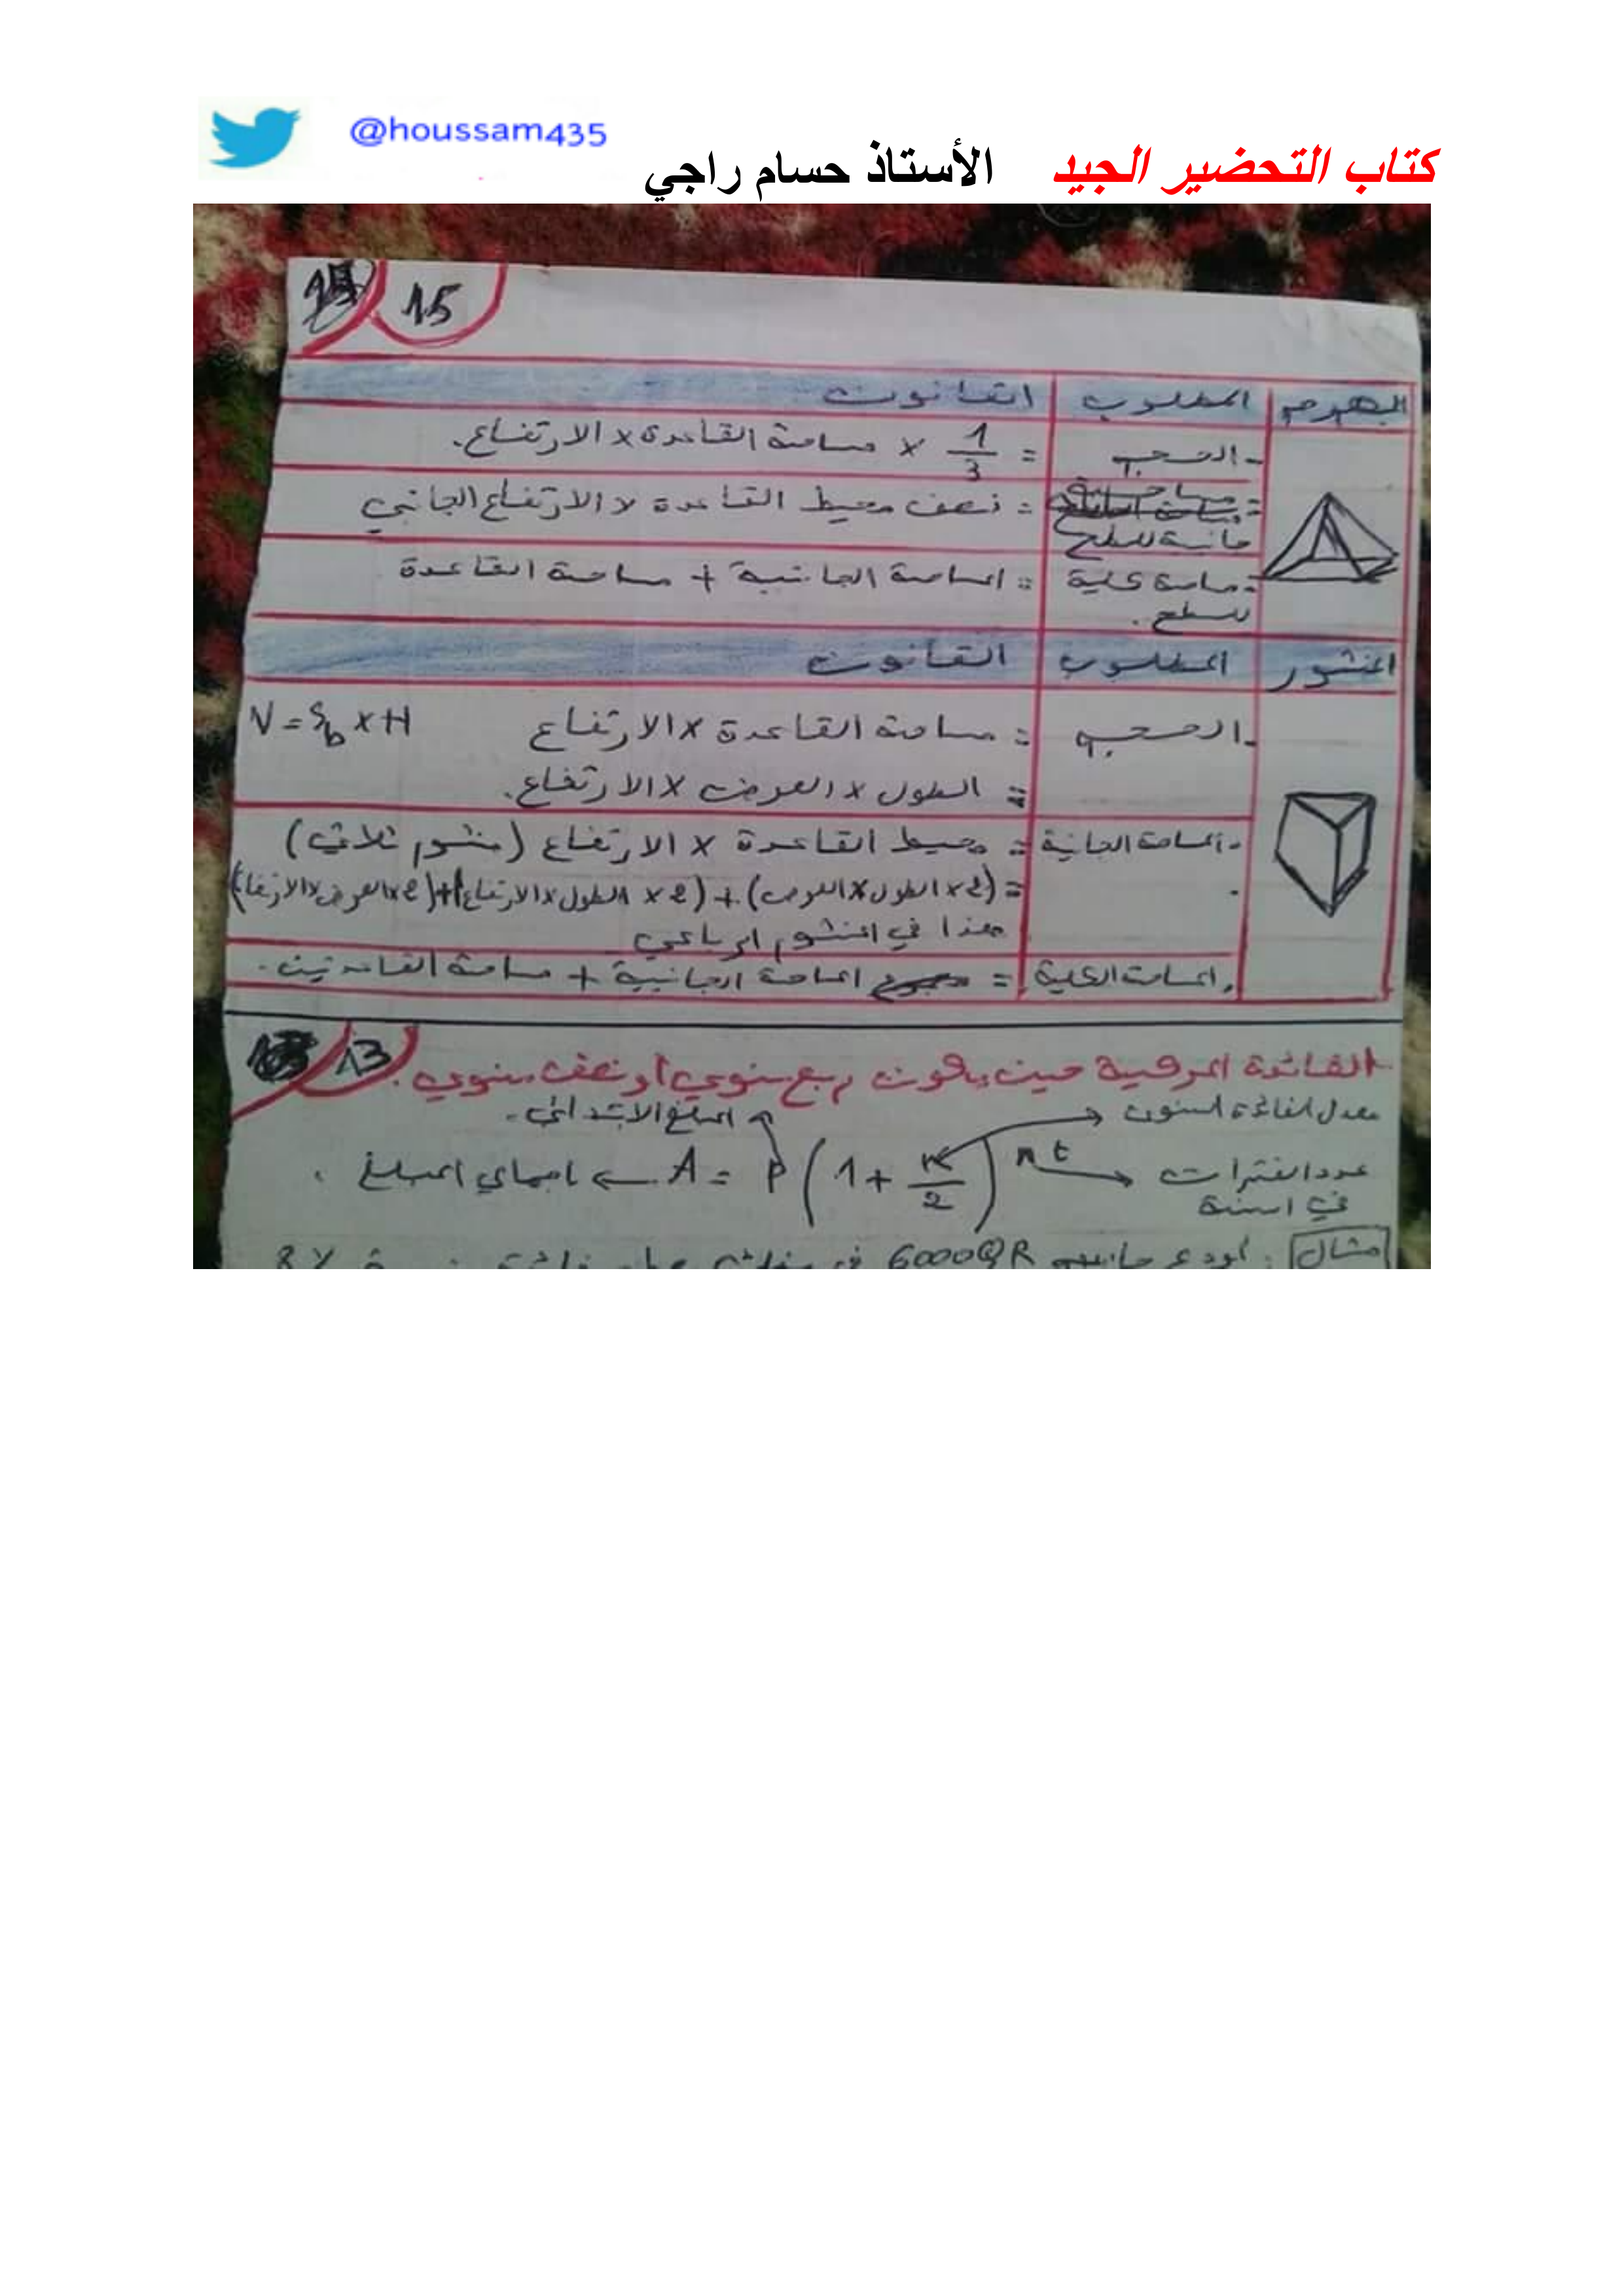 @houssam435
كتاب التحضير الجيد الأستاذ حسام راجي
15
الهرم المطلوب القانون
- الحجم = 1/3 × مساحة القاعدة × الارتفاع.
جانبية للسطح = نصف محيط القاعدة × الارتفاع الجانبي
- مساحة كلية = المساحة الجانبية + مساحة القاعدة
للسطح.
المنشور المطلوب القانون
- الحجم = مساحة القاعدة × الارتفاع V = Sb × H
= الطول × العرض × الارتفاع.
- المساحة الجانبية = محيط القاعدة × الارتفاع (منشور ثلاثي)
= (2 × الطول × العرض) + (2 × الطول × الارتفاع) + (2 × العرض × الارتفاع)
هذا في المنشور الرباعي
. المساحة الكلية = المساحة الجانبية + مساحة القاعدتين.
13
الفائدة المركبة حين يكون ربع سنوي أو نصف سنوي.
معدل الفائدة السنوي المبلغ الابتدائي.
A = P (1 + r/2)^nt ← اجمالي المبلغ.
عدد الفترات
في السنة
مثال: أودع جاسم 6000QR في